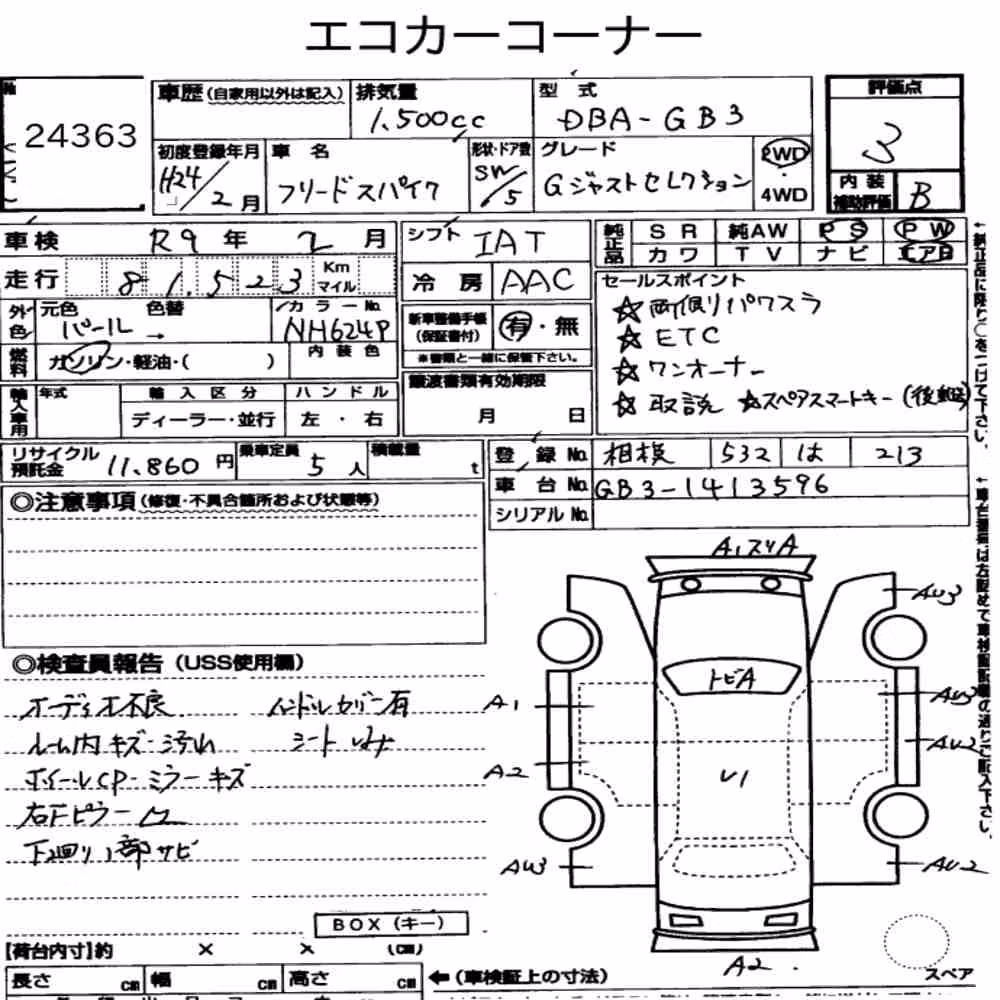 エコカーコーナー
24363
車歴(自家用以外は記入) 排気量 型式 評価点
1.500cc DBA-GB3 3
初度登録年月 車名 形状・ドア数 グレード 2WD・4WD
H24/2月 フリードスパイク SW/5 Gジャストセレクション
内装補助評価 B
車検 R9年 2月 シフト IAT
純正品 SR 純AW PS PW
カワ TV ナビ エアB
走行 81.523 Km マイル 冷房 AAC
セールスポイント
☆両側パワスラ
☆ETC
☆ワンオーナー
☆取説 ☆スペアスマートキー(後
外色 元色 色替 カラーNo.
パール → NH624P
新車整備手帳(保証書付) 有・無
※書類と一緒に保管下さい。
燃料 ガソリン・軽油・( ) 内装色
譲渡書類有効期限
月 日
輸入車用 年式 輸入区分 ハンドル
ディーラー・並行 左・右
リサイクル預託金 11.860円 乗車定員 5人 積載量 t
登録No. 相模 532 は 213
車台No. GB3-1413596
シリアルNo.
◎注意事項(修復・不具合箇所および状態等)
◎検査員報告(USS使用欄)
オーディオ不良 ハンドルカバー有
ルーム内キズ・汚れ シート
ホイールCP・ミラーキズ
右Fピラー凹
下廻り1部サビ
A1スリA
AU3
トビA
A1 AU3
AU2
A2
U1
AU3 AU2
A2.
スペア
BOX(キー)
[荷台内寸]約 × × (cm)
長さ cm 幅 cm 高さ cm ←(車検証上の寸法)